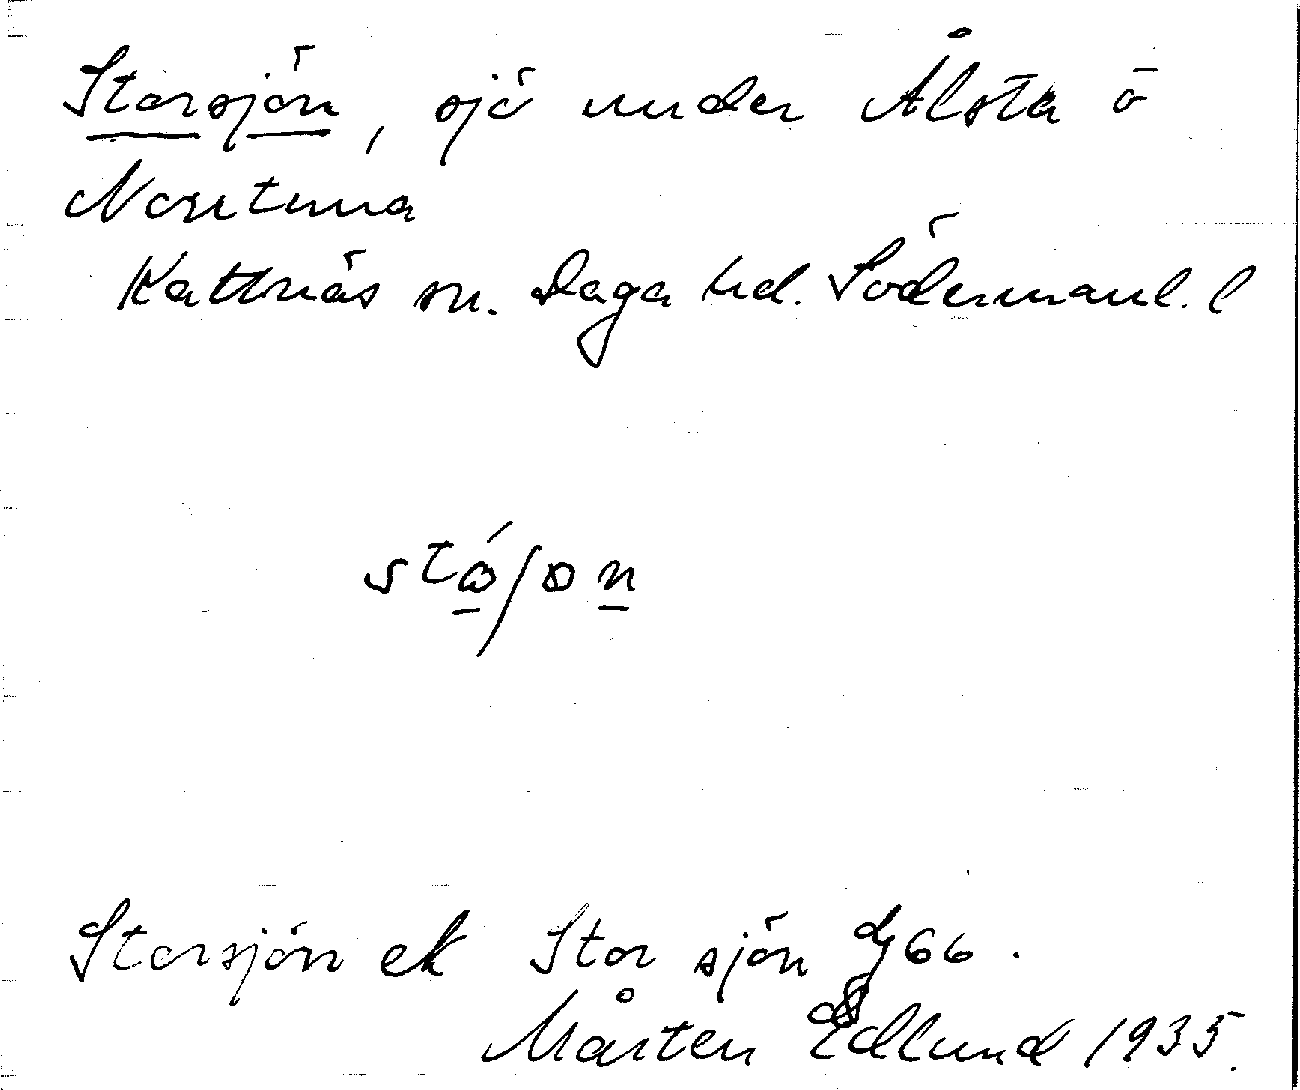 Storsjön, sjö under Ålsta o
Norrtuna
Kattnäs sn. Daga hd. Södermanl. l
Storsjön ek Stor sjön Gj 66.
Mårten Edlund 1935.